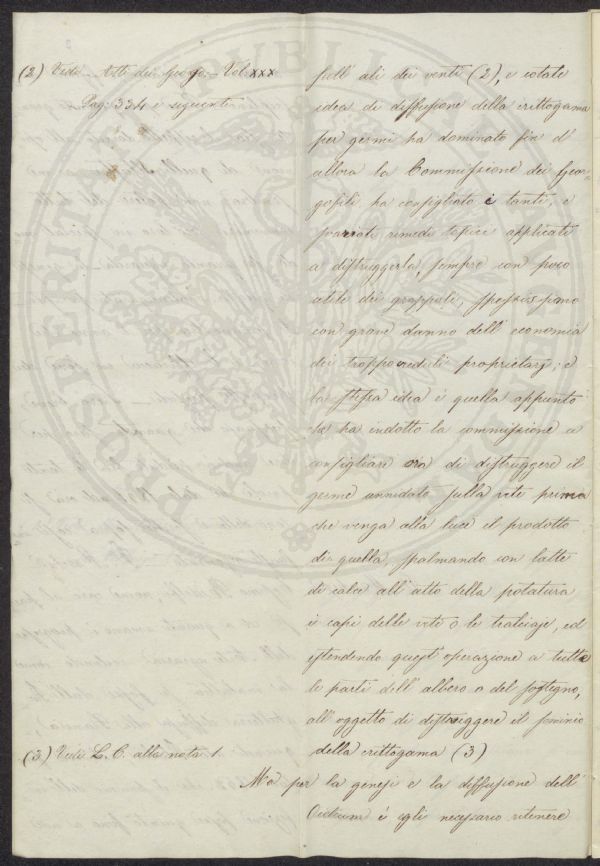 (2) Vedi Atti dei Georgo. Vol. XXX
Pag: 334 e seguenti
sull' ali dei venti (2), e cotale
idea di diffusione della crittogama
per germi ha dominato fin d'
allora la Commissione dei Geor-
gofili, ha consigliato i tanti, e
svariati rimedi topici applicati
a distruggerla, sempre con poco
utile dei grappoli, spessissimo
con grave danno dell' economia
dei troppo creduli proprietarj; e
la stessa idea è quella appunto
che ha indotto la commissione a
consigliare ora di distruggere il
germe annidato sulla vite prima
che venga alla luce il prodotto
di quella, spalmando con latte
di calce all' atto della potatura
i capi delle vite o le tralciaje, ed
estendendo quest' operazione a tutte
le parti dell' albero o del sostegno,
all' oggetto di distruggere il seminio
della crittogama (3)
(3) Vedi L. C. alla nota 1.
Ma per la genesi e la diffusione dell'
Oidium è egli necessario ritenere
PROSPERITATI PUBLICAE